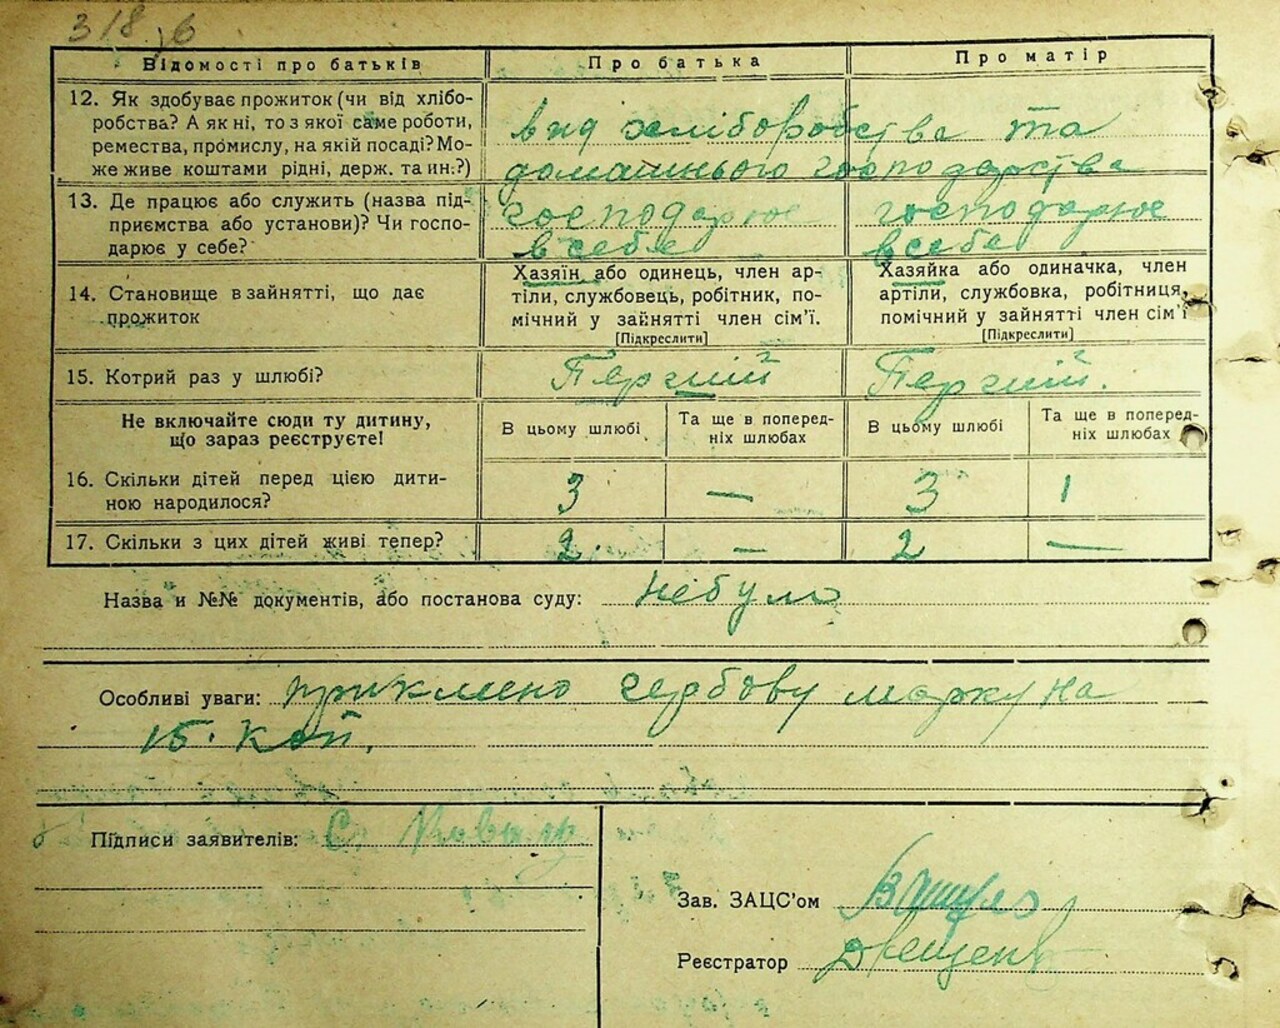 318
Відомості про батьків Про батька Про матір
12. Як здобуває прожиток (чи від хлібо-
робства? А як ні, то з якої саме роботи,
ремества, промислу, на якій посаді? Мо-
же живе коштами рідні, держ. та ин.?)
від хліборобства та
домашнього господарства
13. Де працює або служить (назва під-
приємства або установи)? Чи госпо-
дарює у себе?
господарює
в себе
господарює
в себе
14. Становище в зайнятті, що дає
прожиток
Хазяїн або одинець, член ар-
тіли, службовець, робітник, по-
мічний у зайнятті член сім'ї.
[Підкреслити]
Хазяйка або одиначка, член
артіли, службовка, робітниця,
помічний у зайнятті член сім'ї
[Підкреслити]
15. Котрий раз у шлюбі? Перший Перший.
Не включайте сюди ту дитину,
що зараз реєструєте!
В цьому шлюбі
Та ще в поперед-
ніх шлюбах
В цьому шлюбі
Та ще в поперед-
ніх шлюбах
16. Скільки дітей перед цією дити-
ною народилося?
3 — 3 1
17. Скільки з цих дітей живі тепер? 2. — 2 —
Назва и №№ документів, або постанова суду: небуло
Особливі уваги: приклено гербову марку на
15. коп.
Підписи заявителів: С.
Зав. ЗАЦС'ом
Реєстратор